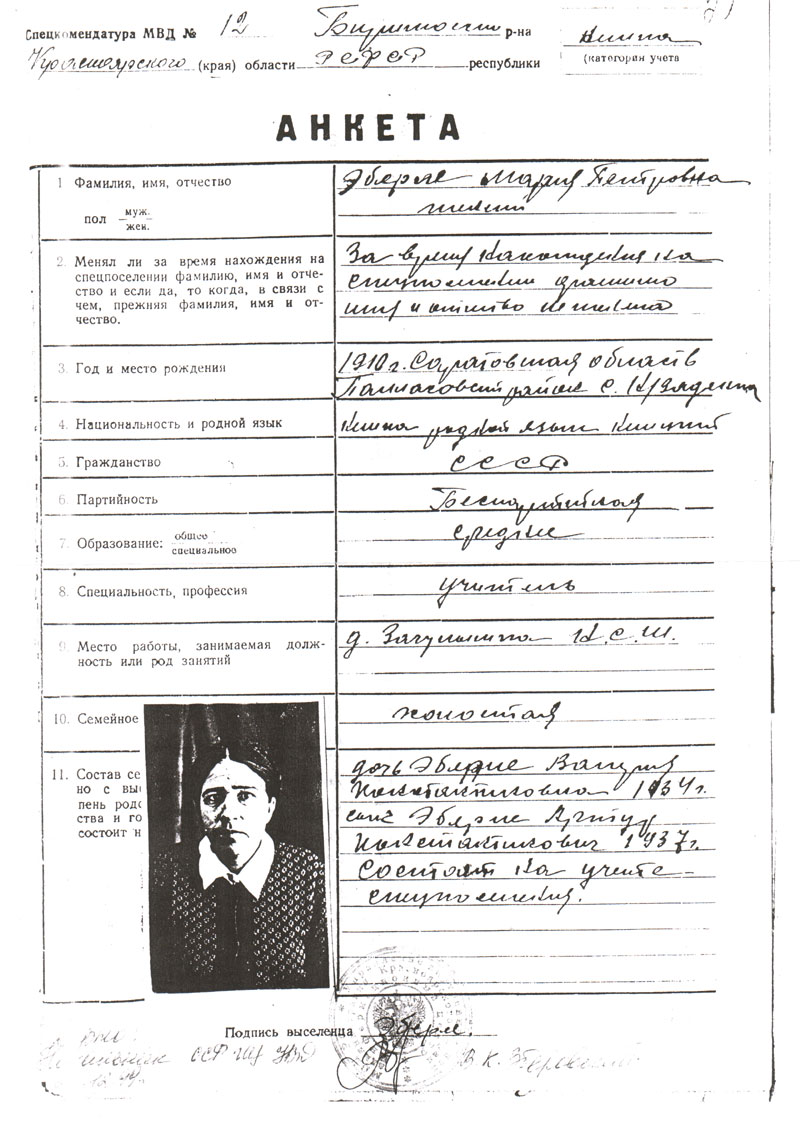 Спецкомендатура МВД № 12 р-на
Красноярского (края) области РСФСР республики
(категория учета
АНКЕТА
1 Фамилия, имя, отчество
Эберле Мария Петровна
пол муж.
жен.
2. Менял ли за время нахождения на
спецпоселении фамилию, имя и отче-
ство и если да, то когда, в связи с
чем, прежняя фамилия, имя и от-
чество.
За время нахождения на
3. Год и место рождения
1910 г. Саратовская область
4. Национальность и родной язык
Немка родной язык немецкий
5. Гражданство
СССР
6. Партийность
Беспартийная
7. Образование: общее
специальное
среднее
8. Специальность, профессия
учитель
9. Место работы, занимаемая долж-
ность или род занятий
д. Зачулымка Н.С.Ш.
10. Семейное
холостая
11. Состав се
но с вы
пень родс
ства и го
состоит н
дочь Эберле
Константиновна 1934 г.
сын Эберле Артур
Константинович 1937 г.
Состоят на учете
спецпоселения.
Подпись выселенца Эберле.